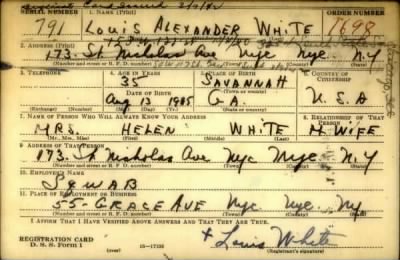 Duplicate Card Issued
SERIAL NUMBER 1. NAME (Print) ORDER NUMBER
791 LOUIS ALEXANDER WHITE 1698
2. ADDRESS (Print)
173 St Nicholas Ave Nyc Nyc. N.Y
(Number and street or R. F. D. number) (Town) (County) (State)
3. TELEPHONE 4. AGE IN YEARS 5. PLACE OF BIRTH 6. COUNTRY OF CITIZENSHIP
35 SAVANNAH
DATE OF BIRTH
Aug 13 1905 GA. U.S.A
(Exchange) (Number) (Mo.) (Day) (Yr.) (State or county)
7. NAME OF PERSON WHO WILL ALWAYS KNOW YOUR ADDRESS 8. RELATIONSHIP OF THAT PERSON
MRS. HELEN WHITE WIFE
(Mr., Mrs., Miss) (First) (Middle) (Last)
9. ADDRESS OF THAT PERSON
173. St Nicholas Ave Nyc Nyc. N.Y
(Number and street or R. F. D. number) (Town) (County) (State)
10. EMPLOYER'S NAME
11. PLACE OF EMPLOYMENT OR BUSINESS
55- GRACE AVE Nyc Nyc. Ny
(Number and street or R. F. D. number) (Town) (County) (State)
I AFFIRM THAT I HAVE VERIFIED ABOVE ANSWERS AND THAT THEY ARE TRUE.
REGISTRATION CARD
D. S. S. Form 1 (over) 16-17105
Louis White
(Registrant's signature)